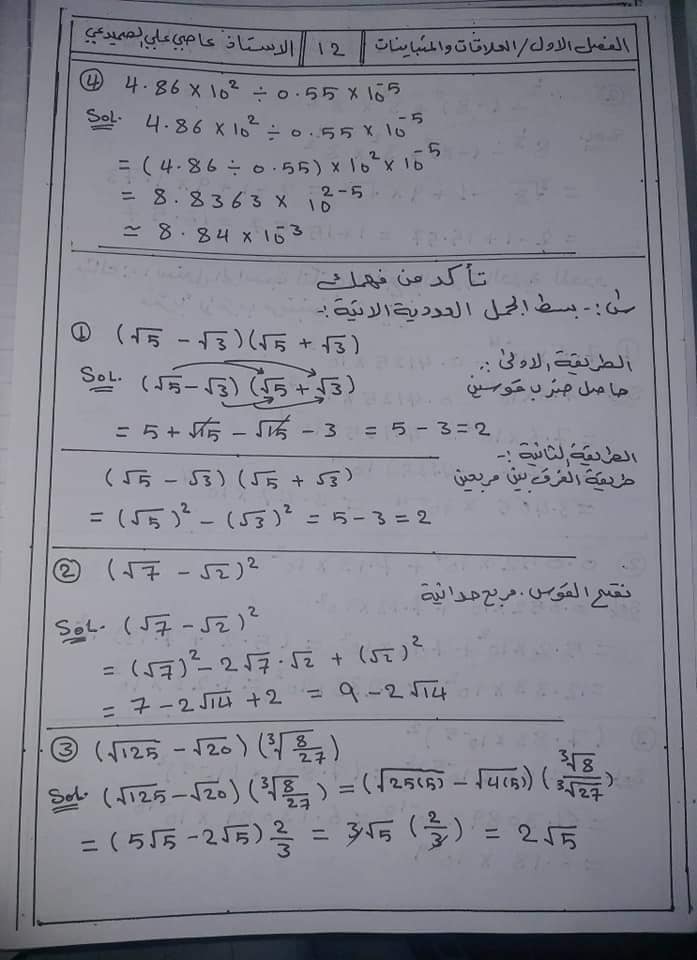 الفصل الاول/العلاقات والمتباينات 12 الاستاذ عاصي علي الصميدعي
④ 4.86 × 10² ÷ 0.55 × 10⁻⁵
Sol. 4.86 × 10² ÷ 0.55 × 10⁻⁵
= (4.86 ÷ 0.55) × 10² × 10⁻⁵
= 8.8363 × 10²⁻⁵
≃ 8.84 × 10⁻³
تأكد من فهمك
س/:- بسط الجمل العددية الاتية :-
① (√5 − √3)(√5 + √3)
الطريقة الاولى :.
Sol. (√5 − √3)(√5 + √3)
حاصل ضرب قوسين
= 5 + √15 − √15 − 3 = 5 − 3 = 2
الطريقة الثانية :-
(√5 − √3)(√5 + √3)
طريقة الفرق بين مربعين
= (√5)² − (√3)² = 5 − 3 = 2
② (√7 − √2)²
نفتح القوس . مربع حدانية
Sol. (√7 − √2)²
= (√7)² − 2√7 · √2 + (√2)²
= 7 − 2√14 + 2 = 9 − 2√14
③ (√125 − √20)(∛8/27)
Sol. (√125 − √20)(∛8/27) = (√25(5) − √4(5))(∛8/∛27)
= (5√5 − 2√5) 2/3 = 3√5 (2/3) = 2√5